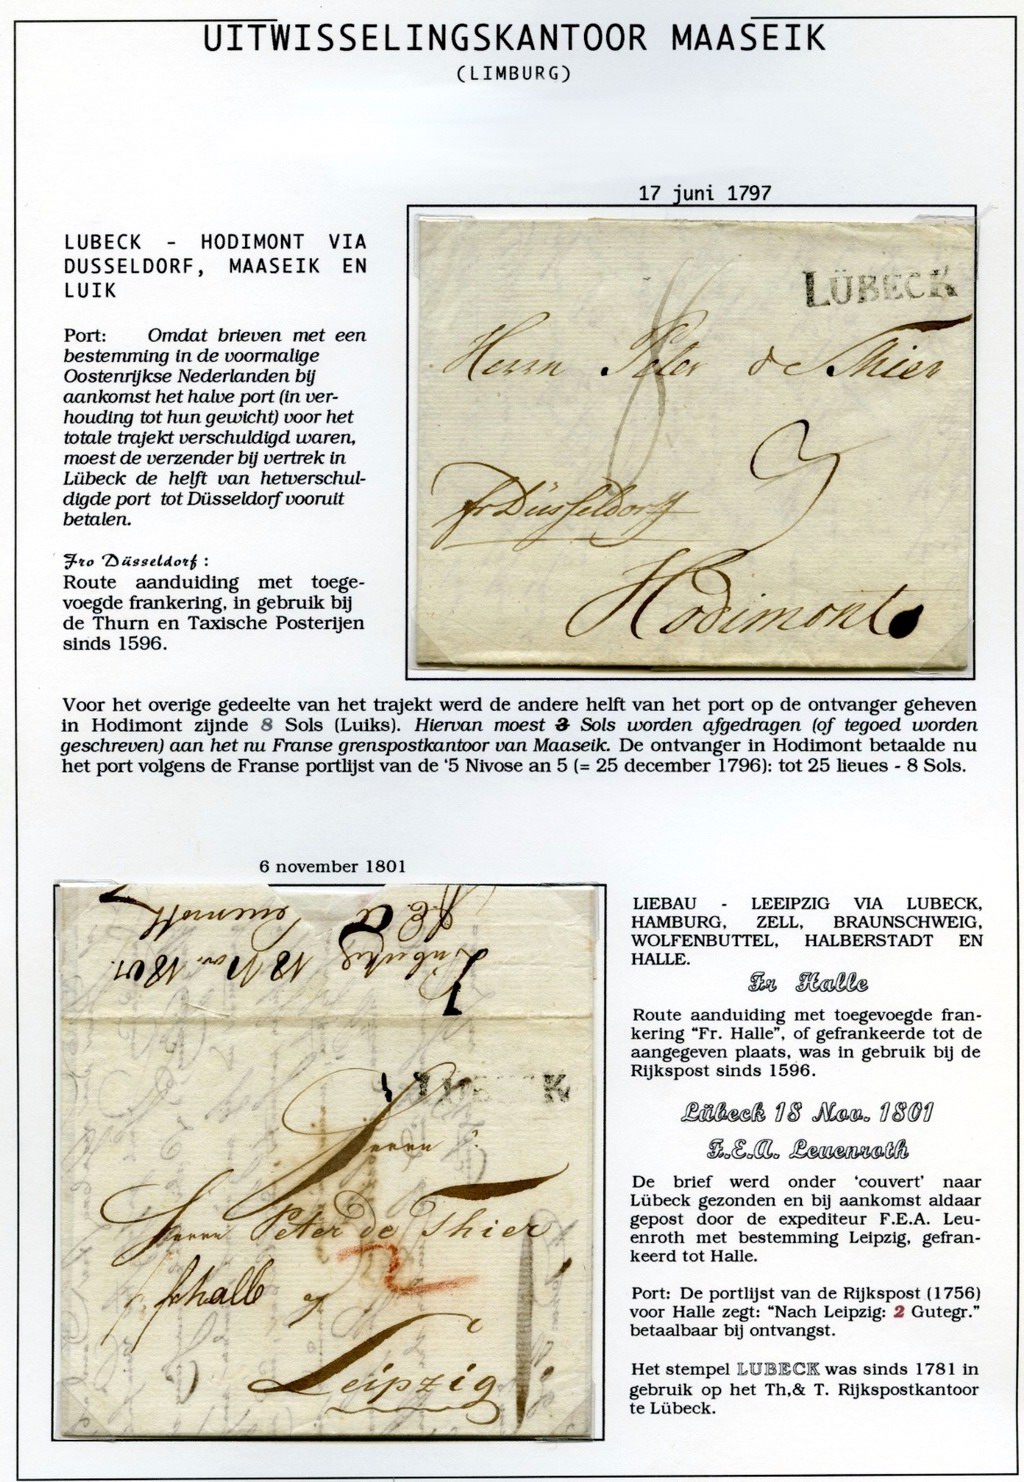 UITWISSELINGSKANTOOR MAASEIK
(LIMBURG)
17 juni 1797
LUBECK - HODIMONT VIA
DUSSELDORF, MAASEIK EN
LUIK
Port: Omdat brieven met een
bestemming in de voormalige
Oostenrijkse Nederlanden bij
aankomst het halve port (in ver-
houding tot hun gewicht) voor het
totale trajekt verschuldigd waren,
moest de verzender bij vertrek in
Lübeck de helft van hetverschul-
digde port tot Düsseldorf vooruit
betalen.
Fro Düsseldorf :
Route aanduiding met toege-
voegde frankering, in gebruik bij
de Thurn en Taxische Posterijen
sinds 1596.
LÜBECK
Herrn Peter de Thier
8
3
fr Düsseldorff
Hodimont
Voor het overige gedeelte van het trajekt werd de andere helft van het port op de ontvanger geheven
in Hodimont zijnde 8 Sols (Luiks). Hiervan moest 3 Sols worden afgedragen (of tegoed worden
geschreven) aan het nu Franse grenspostkantoor van Maaseik. De ontvanger in Hodimont betaalde nu
het port volgens de Franse portlijst van de '5 Nivose an 5 (= 25 december 1796): tot 25 lieues - 8 Sols.
6 november 1801
Lübeck 18 Nov. 1801
F.E.A. Leuenroth
LUBECK
Herrn
Herrn Peter de Thier
2
frhalle
Leipzig
LIEBAU - LEEIPZIG VIA LUBECK,
HAMBURG, ZELL, BRAUNSCHWEIG,
WOLFENBUTTEL, HALBERSTADT EN
HALLE.
Fr Halle
Route aanduiding met toegevoegde fran-
kering "Fr. Halle", of gefrankeerde tot de
aangegeven plaats, was in gebruik bij de
Rijkspost sinds 1596.
Lübeck 18 Nov. 1801
F.E.A. Leuenroth
De brief werd onder 'couvert' naar
Lübeck gezonden en bij aankomst aldaar
gepost door de expediteur F.E.A. Leu-
enroth met bestemming Leipzig, gefran-
keerd tot Halle.
Port: De portlijst van de Rijkspost (1756)
voor Halle zegt: "Nach Leipzig: 2 Gutegr."
betaalbaar bij ontvangst.
Het stempel LUBECK was sinds 1781 in
gebruik op het Th,& T. Rijkspostkantoor
te Lübeck.